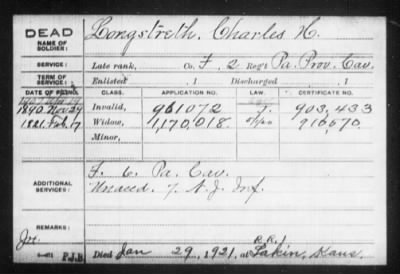 DEAD
NAME OF SOLDIER: Longstreth, Charles H.
SERVICE: Late rank, Co. F, 2 Reg't Pa. Prov. Cav.
TERM OF SERVICE: Enlisted , 1 Discharged , 1
DATE OF FILING. CLASS. APPLICATION NO. LAW. CERTIFICATE NO.
1890. Nov. 29 Invalid, 961072 903,433
1921. Feb. 17 Widow, 1,170,018.
Minor,
ADDITIONAL SERVICES: F. 6. Pa. Cav.
7. N.J. Inf.
REMARKS:
P.J.B. Died Jan 29, 1921, at Lakin, Kans.
R.R. 1